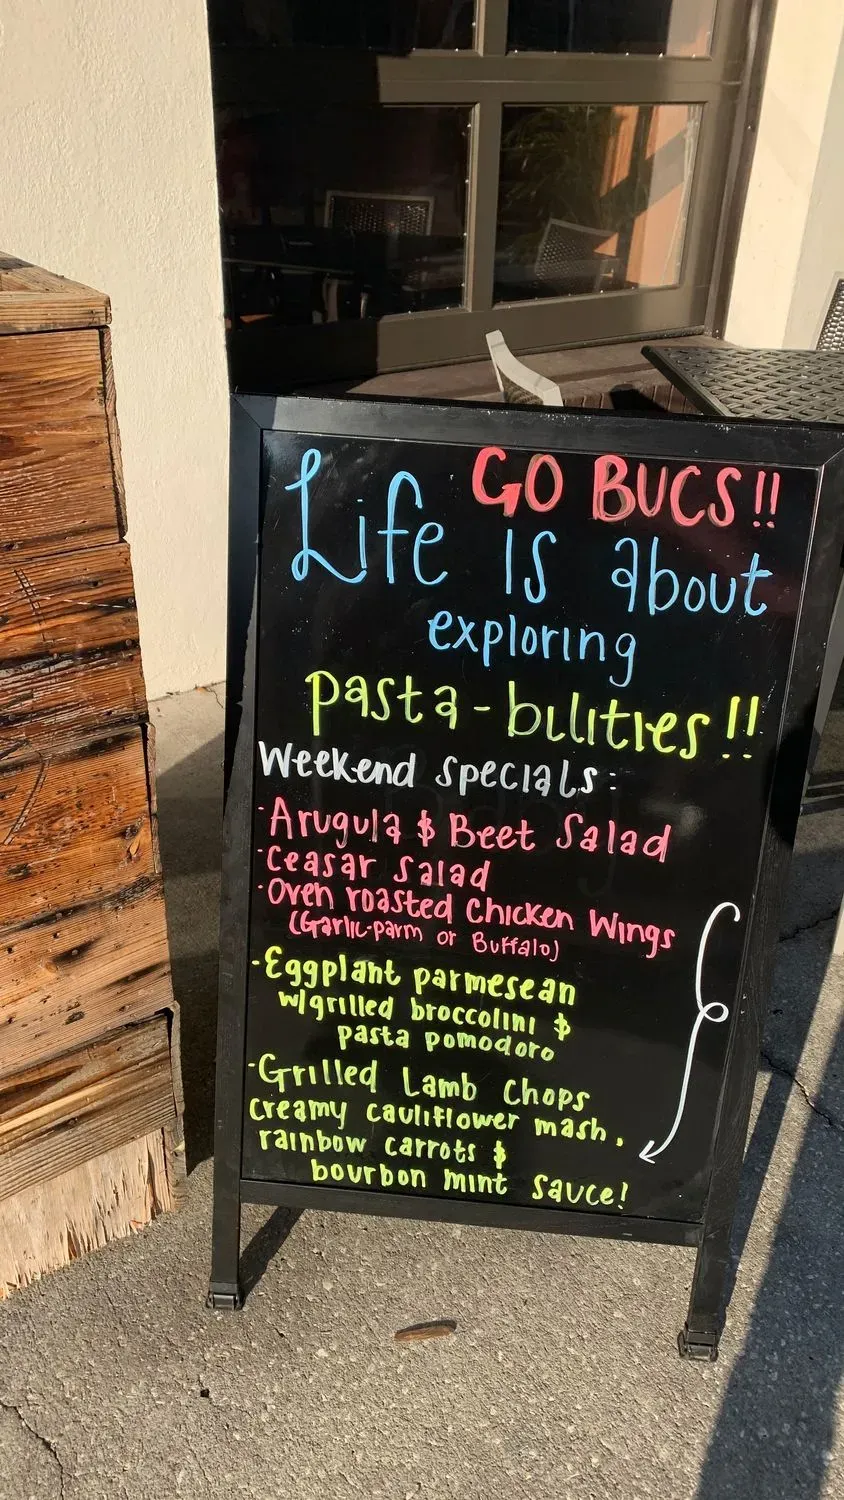 GO BUCS!!
Life is about
exploring
pasta-bilities!!
Weekend specials:
·Arugula & Beet Salad
·Ceasar Salad
·Oven roasted Chicken Wings
(Garlic-parm or Buffalo)
-Eggplant parmesean
w/grilled broccolini &
pasta pomodoro
-Grilled Lamb Chops
creamy cauliflower mash,
rainbow carrots &
bourbon mint sauce!